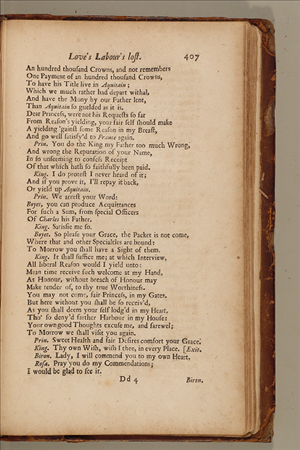 Love's Labour's lost. 407
An hundred thousand Crowns, and not remembers
One Payment of an hundred thousand Crowns,
To have his Title live in Aquitain;
Which we much rather had depart withal,
And have the Mony by our Father lent,
Than Aquitain so guelded as it is.
Dear Princess, were not his Requests so far
From Reason's yielding, your fair self should make
A yielding 'gainst some Reason in my Breast,
And go well satisfy'd to France again.
Prin. You do the King my Father too much Wrong,
And wrong the Reputation of your Name,
In so unseeming to confess Receipt
Of that which hath so faithfully been paid.
King. I do protest I never heard of it;
And if you prove it, I'll repay it back,
Or yield up Aquitain.
Prin. We arrest your Word:
Boyet, you can produce Acquittances
For such a Sum, from special Officers
Of Charles his Father.
King. Satisfie me so.
Boyet. So please your Grace, the Packet is not come,
Where that and other Specialties are bound:
To Morrow you shall have a Sight of them.
King. It shall suffice me; at which Interview,
All liberal Reason would I yield unto:
Mean time receive such welcome at my Hand,
As Honour, without breach of Honour may
Make tender of, to thy true Worthiness.
You may not come, fair Princess, in my Gates,
But here without you shall be so receiv'd,
As you shall deem your self lodg'd in my Heart,
Tho' so deny'd farther Harbour in my House:
Your own good Thoughts excuse me, and farewel;
To Morrow we shall visit you again.
Prin. Sweet Health and fair Desires comfort your Grace.
King. Thy own Wish, wish I thee, in every Place. [Exit.
Biron. Lady, I will commend you to my own Heart.
Rosa. Pray you do my Commendations;
I would be glad to see it.
Dd 4 Biron.